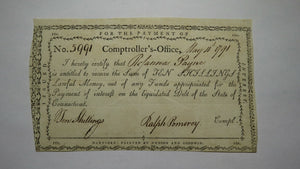 FOR THE PAYMENT OF
No. 5991 Comptroller's-Office, May 11 1791
I hereby certify that Payne
is entitled to receive the Sum of TEN SHILLINGS
Lawful Money, out of any Funds appropriated for the
Payment of interest on the Liquidated Debt of the State of
Connecticut.
Ten Shillings Ralph Pomeroy Compt.
HARTFORD, PRINTED BY HUDSON AND GOODWIN.